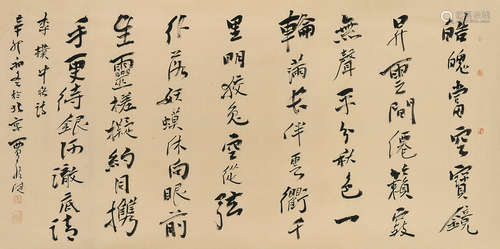 皓魄當空寶鏡
昇雲間僊籟寂
無聲平分秋色一
輪滿長伴雲衢千
里明狡兔空從弦
外落妖蟆休向眼前
生靈槎擬約同携
手更待銀河澈底清
李樸中秋詩
辛卯初冬於北京賈